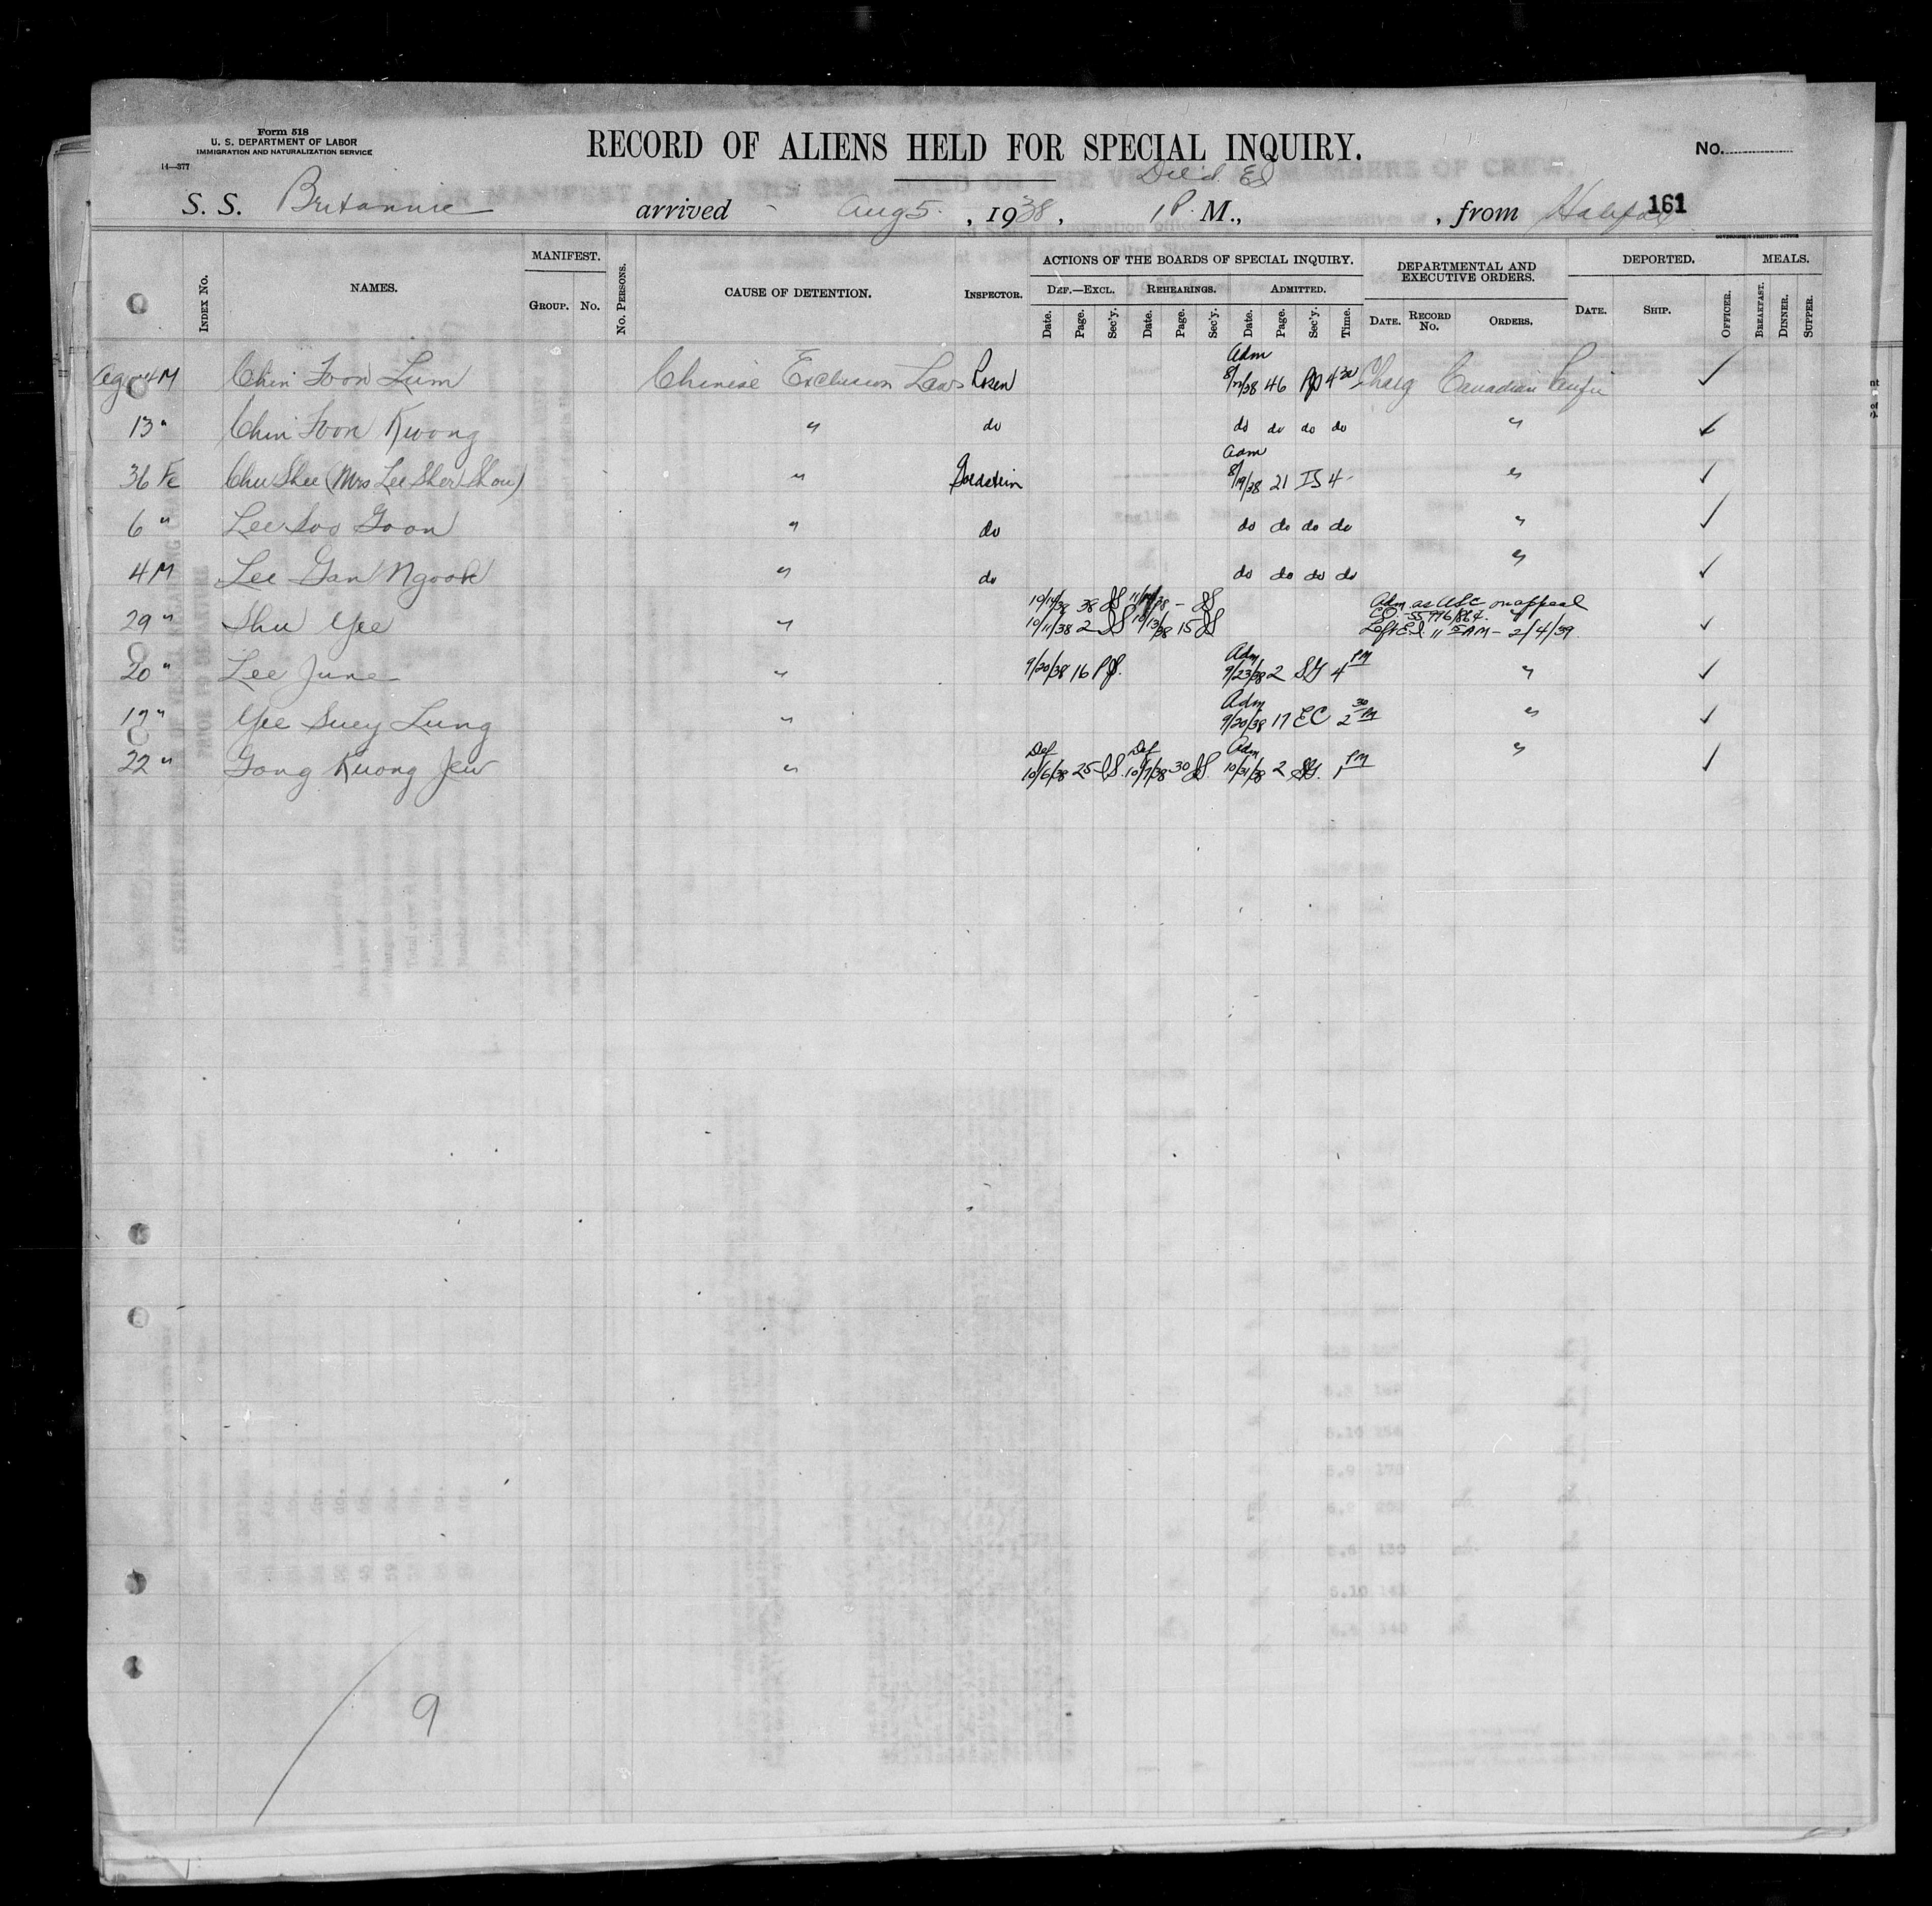 Form 518
U. S. DEPARTMENT OF LABOR
IMMIGRATION AND NATURALIZATION SERVICE
14—377
RECORD OF ALIENS HELD FOR SPECIAL INQUIRY.
No.
S. S. Britannic arrived Aug 5 , 1938 , 1 P. M., , from Halifax
161
INDEX No.
NAMES.
MANIFEST.
GROUP. No.
No. PERSONS.
CAUSE OF DETENTION.
INSPECTOR.
ACTIONS OF THE BOARDS OF SPECIAL INQUIRY.
DEF.—EXCL. REHEARINGS. ADMITTED.
Date. Page. Sec'y. Date. Page. Sec'y. Date. Page. Sec'y. Time.
DEPARTMENTAL AND EXECUTIVE ORDERS.
DATE. RECORD No. ORDERS.
DEPORTED.
DATE. SHIP. OFFICER.
MEALS.
BREAKFAST. DINNER. SUPPER.
Chin Foon Lum Chinese Exclusion Laws Rosen Adm 46 4 30 Canadian Pacific ✓
13 " Chin Foon Kwong " do do do do do " ✓
36 Fe Chu Shee (Mrs Lee Sher Shou) " Goldstein Adm 8/19/38 21 IS 4 - " ✓
6 " Lee Soo Goon " do do do do do " ✓
4 M Lee Gan Ngook " do do do do do " ✓
29 " Shu Yee " 10/14/38 38 10/11/38 2 10/13/38 15 Adm as USC on appeal
C.O. 55996/864.
Left E.I. 11 AM - 2/4/39. ✓
20 " Lee June " 9/20/38 16 Adm 9/23/38 2 SG 4 PM " ✓
17 " Yee Suey Lung " Adm 9/20/38 17 EC 2 30 PM " ✓
22 " Gong Kuong Jew " Def 10/6/38 25 Def 10/7/38 30 Adm 10/31/38 2 SG. 1 PM " ✓
9